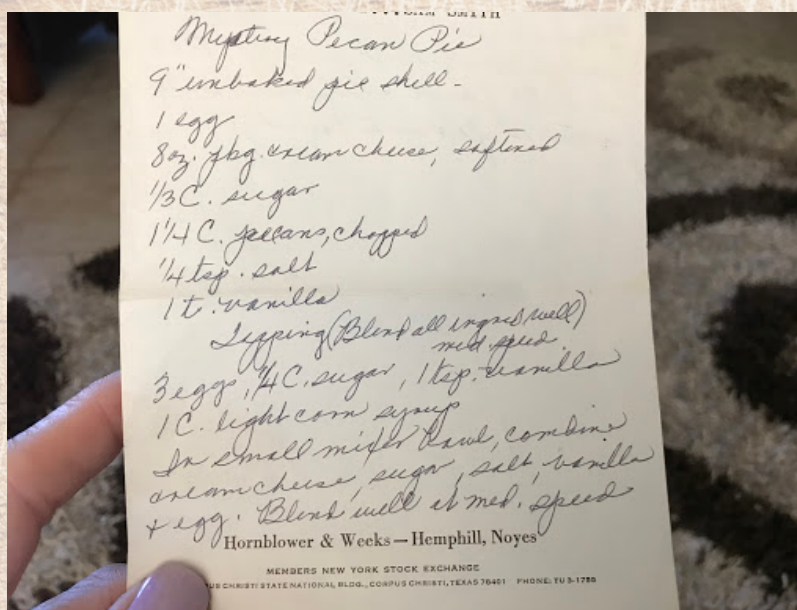 SMITH
Mystery Pecan Pie
9" unbaked pie shell -
1 egg
8oz. pkg. cream cheese, softened
1/3 C. sugar
1 1/4 C. pecans, chopped
1/4 tsp. salt
1 t. vanilla
Topping (Blend all ingred well)
med. speed.
3 eggs, 1/4 C. sugar, 1 tsp. vanilla
1 C. light corn syrup
In small mixer bowl, combine
cream cheese, sugar, salt, vanilla
+ egg. Blend well at med. speed
Hornblower & Weeks — Hemphill, Noyes
MEMBERS NEW YORK STOCK EXCHANGE
US CHRISTI STATE NATIONAL BLDG., CORPUS CHRISTI, TEXAS 78401 PHONE: TU 3-1785